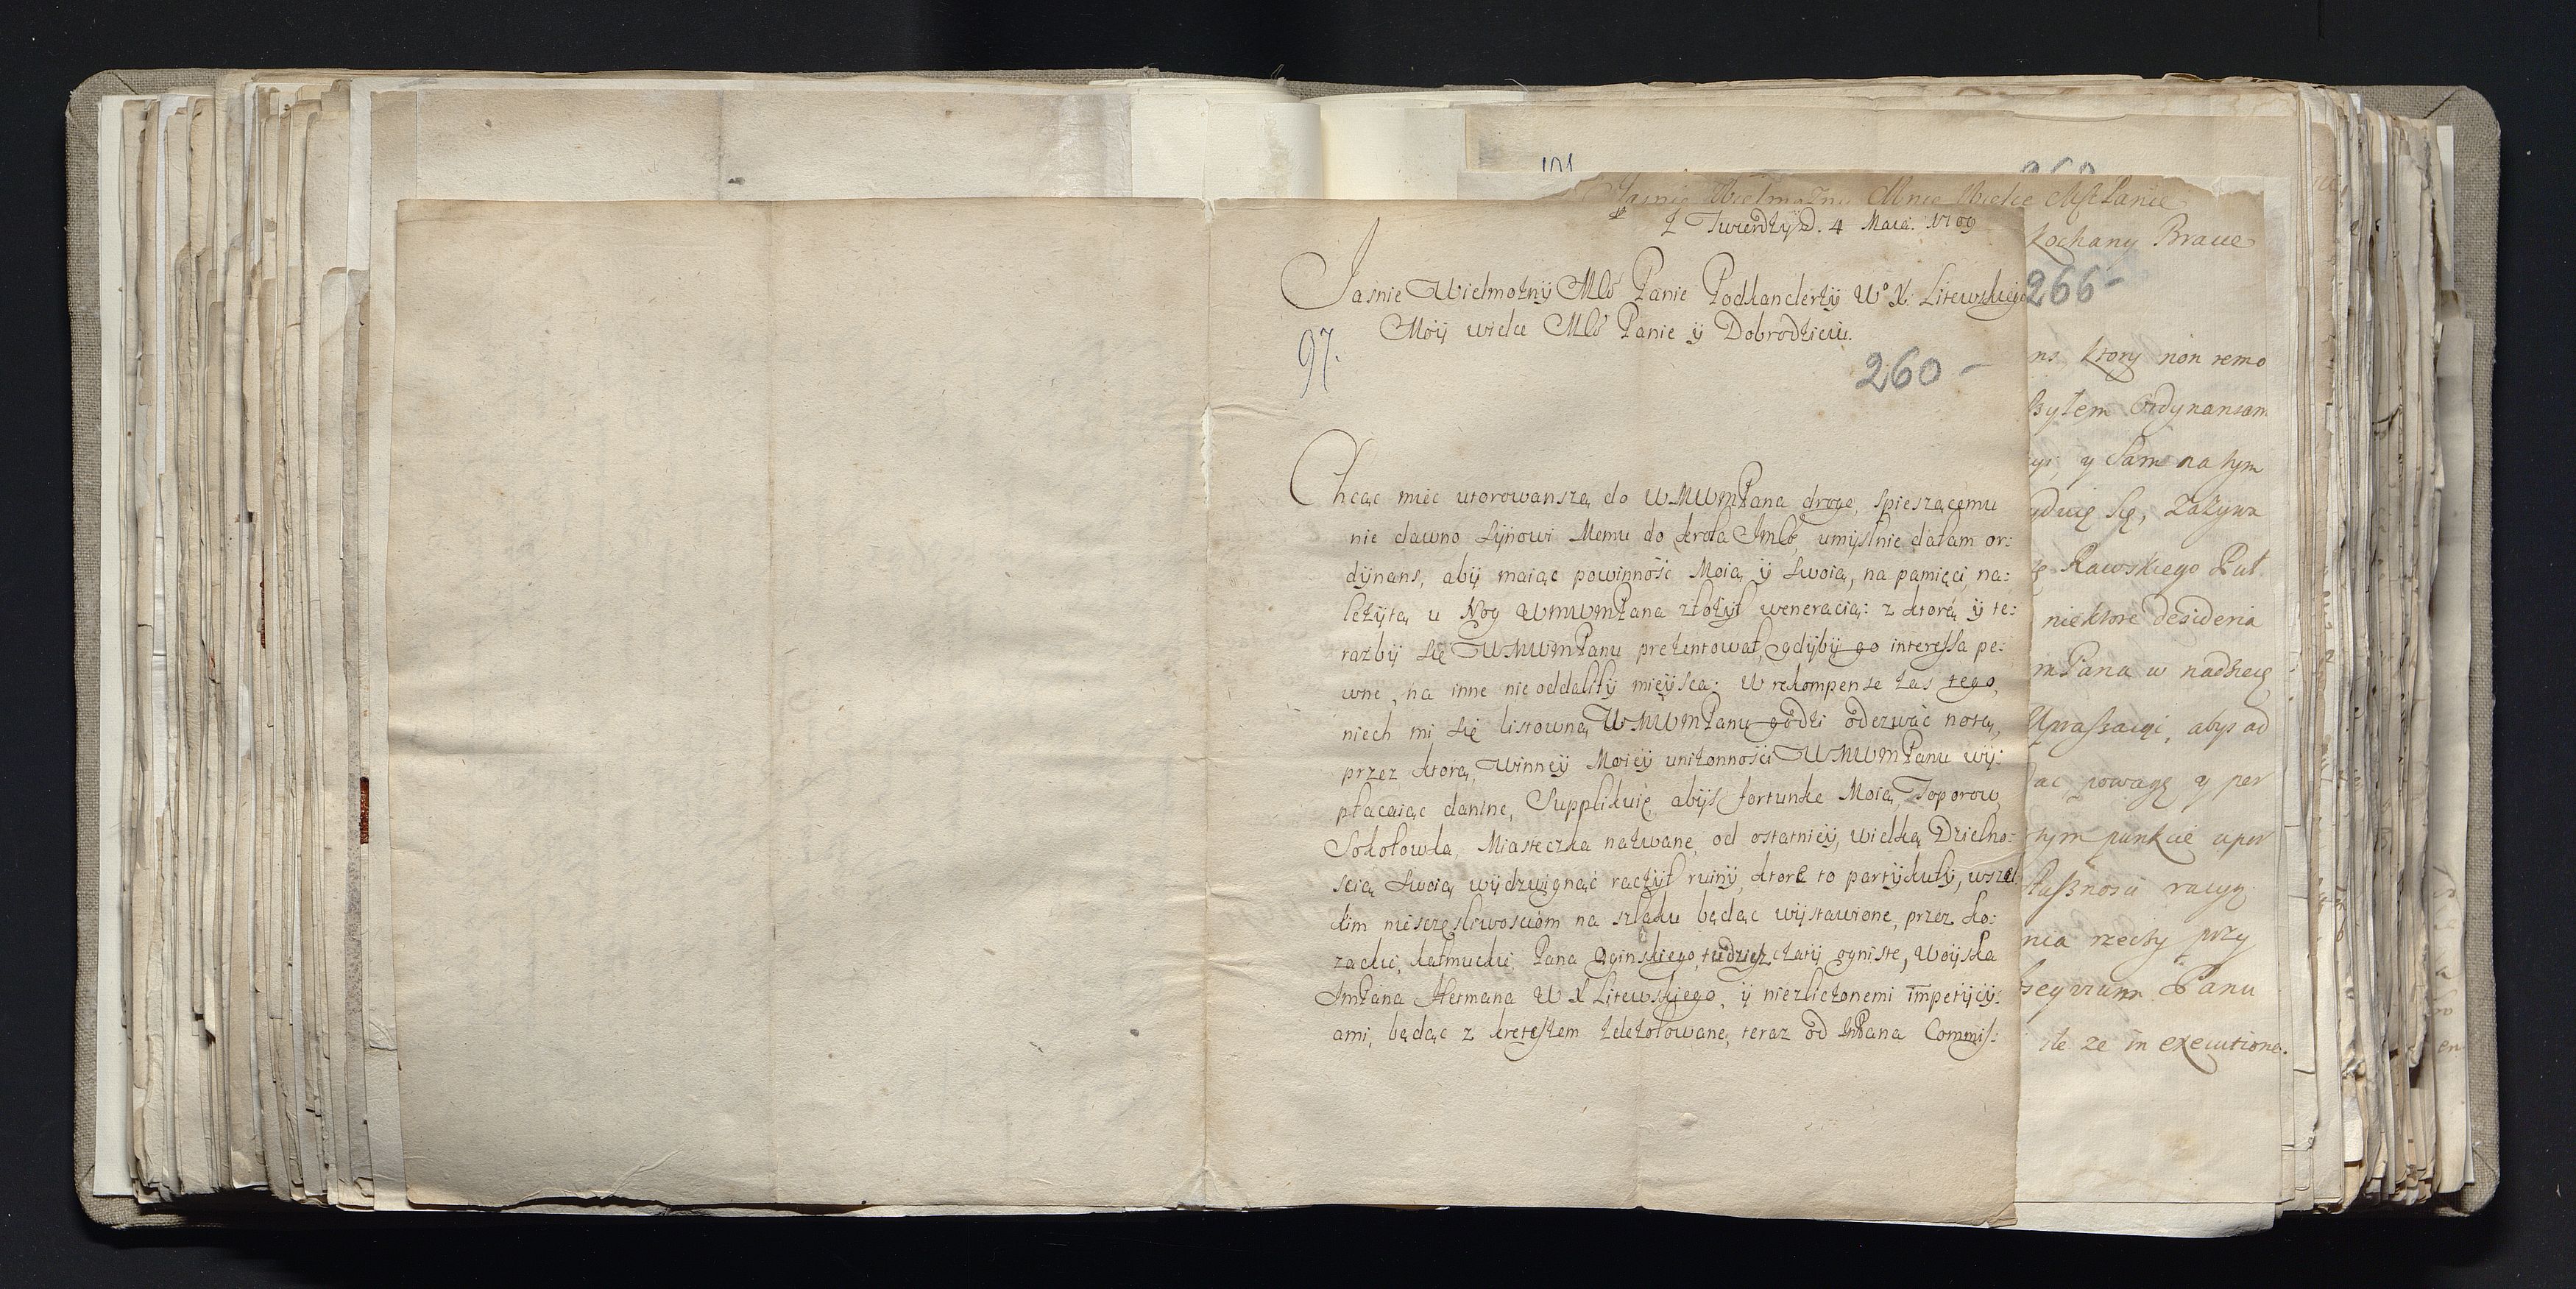 Z Twierdzÿ D. 4 Maia. 1709
Jasnie Wielmożnÿ Młć Panie Podkanclerzÿ Wº X. Litewskiego
Moÿ wielce Młć Panie ÿ Dobrodzieiu.
97.
260 -
Chcąc miec utorowanszą do WMWMPana drogę, spieszącemu
nie dawno Sÿnowi Memu do Krola Jmłć, umÿslnie dałam or:
dÿnans, abÿ maiąc powinnośc Moią ÿ swoią, na pamięci, na:
leżÿtą u Nog WMWMPana złożÿł weneracią: z ktorą ÿ te:
razbÿ się WMWMPanu prezentował, gdÿbÿ go interessa pe:
wne, na inne nie oddalilÿ mieÿsca. W rekompense zas tego,
niech mi się listowną WMWMPanu godzi odezwać notą,
przez ktorą, Winneÿ Moieÿ uniżonności WMWMPanu wÿ:
płacaiąc daninę, Supplikuię abÿś fortunke Moią, Toporow,
Sokołowka, Miasteczka nazwane, od ostatnieÿ, wielką Dzielno:
scią swoią wÿdzwignąć raczÿł ruinÿ, ktore to partÿkułÿ, wszel
kim niesczęsliwosciom na szlaku będąc wÿstawione, przez ko:
zackie, kałmuckie, Pana Oginskiego, tudziesz czatÿ ogniste, Woÿska
JmPana Hetmana W X Litewskiego, ÿ niezliczonemi impetÿcÿ:
ami, będąc z kretesem zdezolowane, teraz od JmPana Commis:
Kochany Bracie
266 -
ktory non remo
Byłem Ordynansam
y Sam na tym
się, Zazywa
Rawskiego Puł.
niektore desideria
mPana w nadzieię
abys ad
powagę y per
tym punkcie aper
racyą
rzeczy przy
Panu
ile ze in executione.